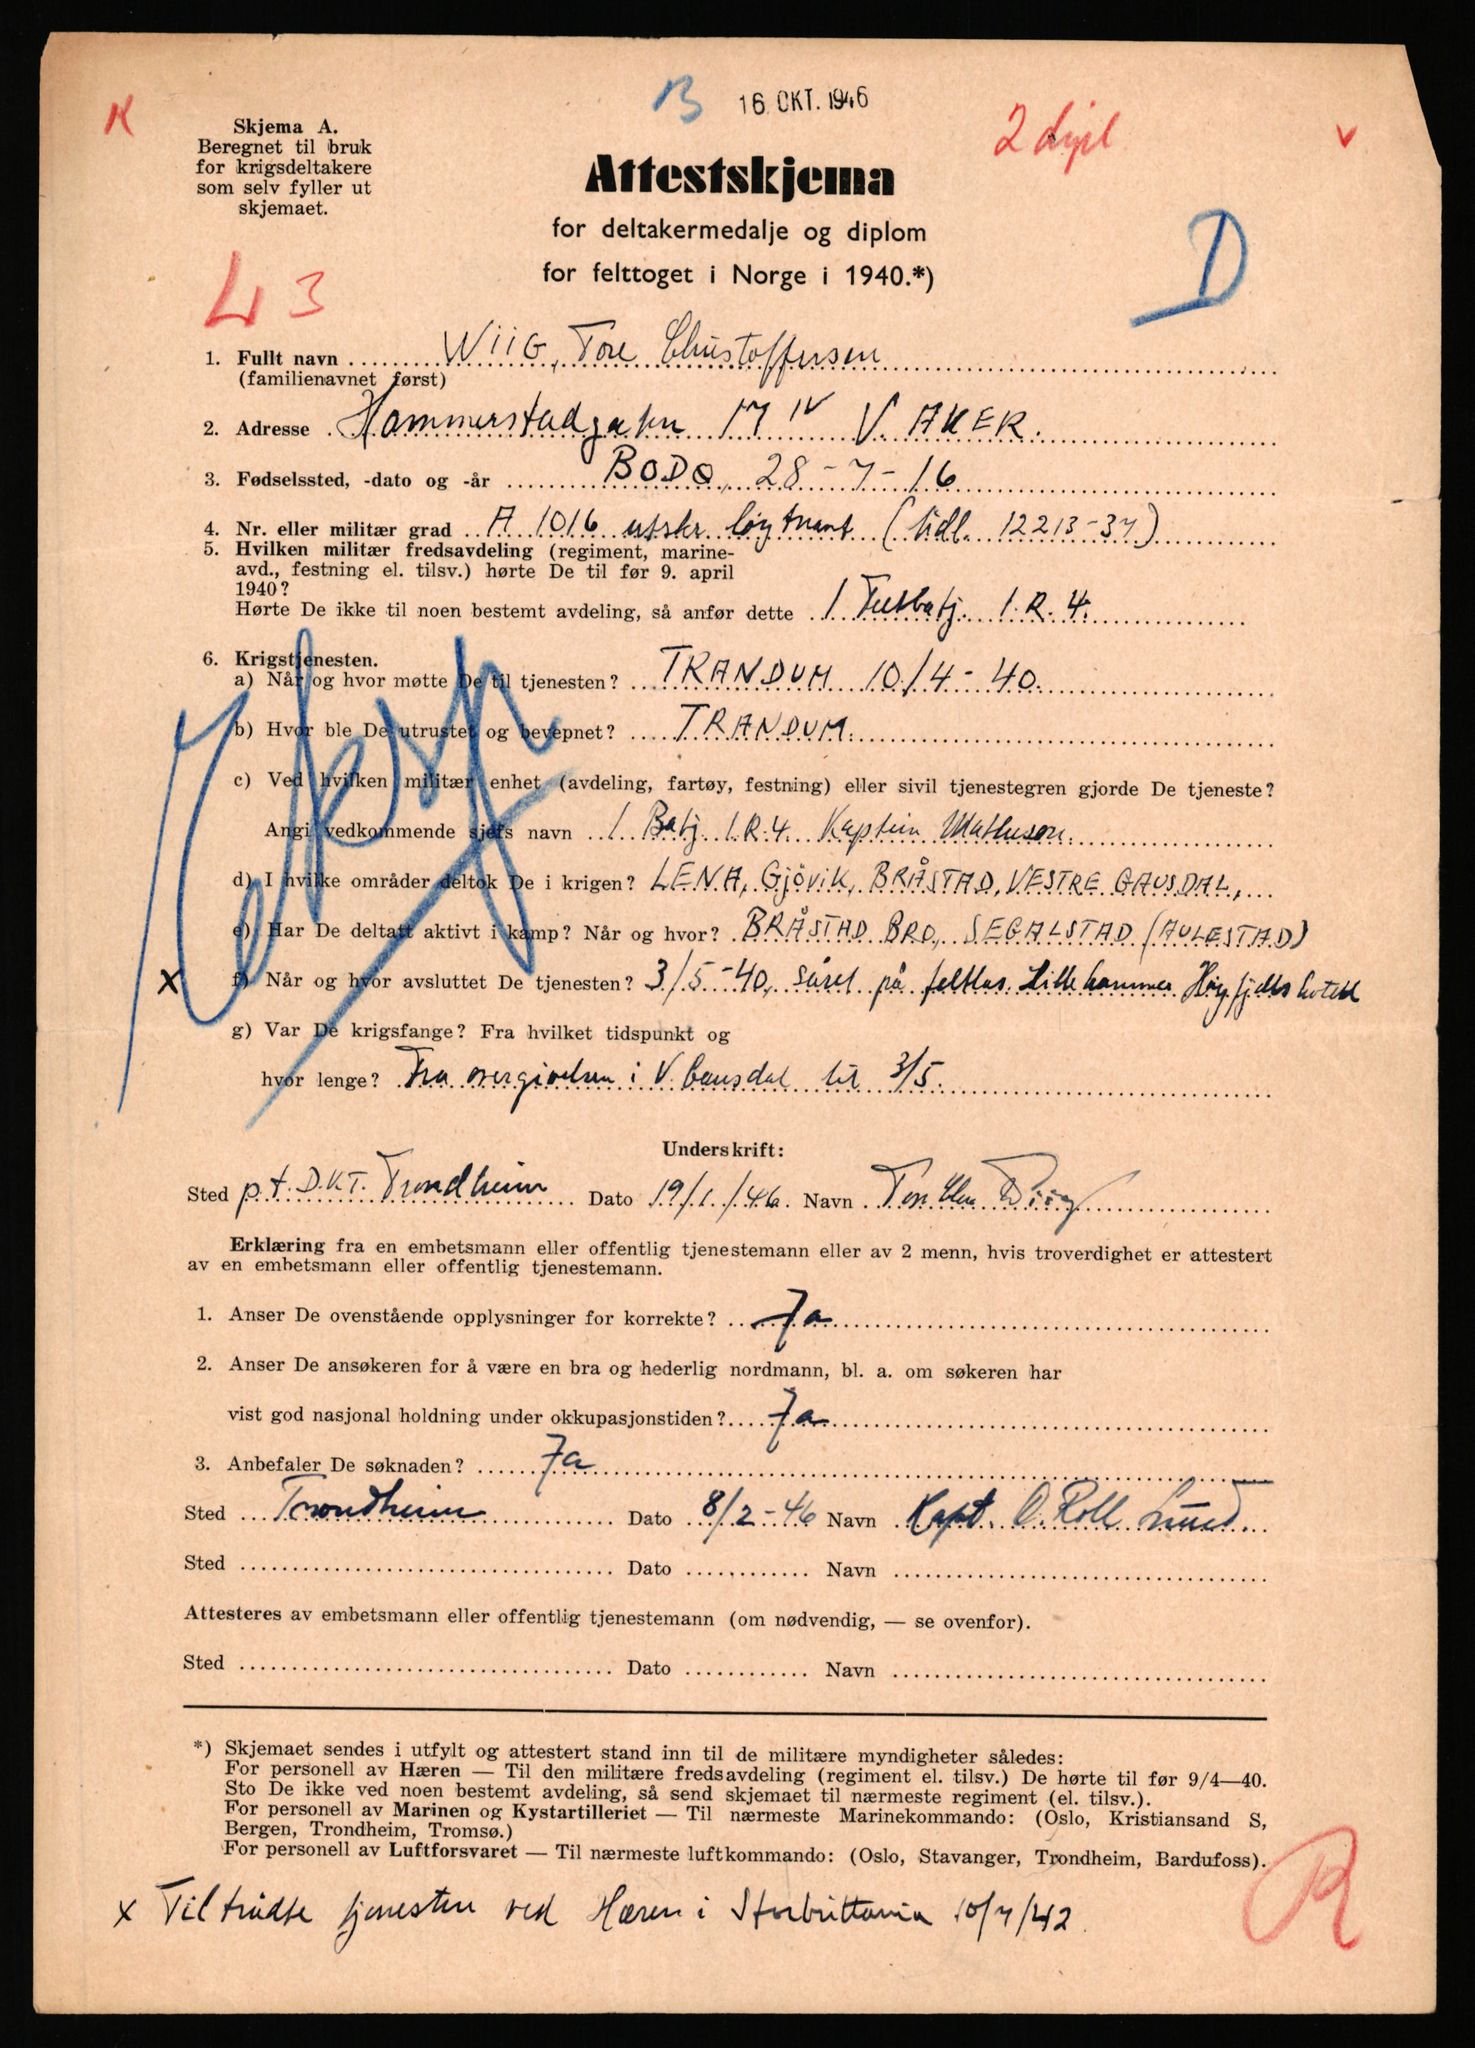 K
B
16 OKT. 1946
2 dipl
V
Skjema A.
Beregnet til bruk
for krigsdeltakere
som selv fyller ut
skjemaet.
Attestskjema
for deltakermedalje og diplom
for felttoget i Norge i 1940.*)
D
43
1. Fullt navn WiiG, Tore Christoffersen
(familienavnet først)
2. Adresse Hammerstadgaten 17 IV V. AKER.
3. Fødselssted, -dato og -år BODØ, 28-7-16
4. Nr. eller militær grad A 1016 utskr løytnant (tidl. 12213-37)
5. Hvilken militær fredsavdeling (regiment, marine-
avd., festning el. tilsv.) hørte De til før 9. april
1940?
Hørte De ikke til noen bestemt avdeling, så anfør dette 1 Feltbatj. I.R. 4.
6. Krigstjenesten.
a) Når og hvor møtte De til tjenesten? TRANDUM 10/4-40
b) Hvor ble De utrustet og bevepnet? TRANDUM.
c) Ved hvilken militær enhet (avdeling, fartøy, festning) eller sivil tjenestegren gjorde De tjeneste?
Angi vedkommende sjefs navn 1 Batj I.R.4 Kaptein Mathesen.
d) I hvilke områder deltok De i krigen? LENA, Gjövik, BRÅSTAD, VESTRE GAUSDAL,
e) Har De deltatt aktivt i kamp? Når og hvor? BRÅSTAD BRO, SEGALSTAD (AULESTAD)
X f) Når og hvor avsluttet De tjenesten? 3/5-40, såret på feltlas. Lillehammer Høyfjells hotell
g) Var De krigsfange? Fra hvilket tidspunkt og
hvor lenge? Fra overgivelsen i V. Gausdal til 3/5.
Underskrift:
Sted p.t. D.K.T. Trondheim Dato 19/1/46. Navn Tore Chr Wiig
Erklæring fra en embetsmann eller offentlig tjenestemann eller av 2 menn, hvis troverdighet er attestert
av en embetsmann eller offentlig tjenestemann.
1. Anser De ovenstående opplysninger for korrekte? Ja
2. Anser De ansøkeren for å være en bra og hederlig nordmann, bl. a. om søkeren har
vist god nasjonal holdning under okkupasjonstiden? Ja
3. Anbefaler De søknaden? Ja
Sted Trondheim Dato 8/2-46 Navn Kapt. O. Roll Lund.
Sted Dato Navn
Attesteres av embetsmann eller offentlig tjenestemann (om nødvendig, — se ovenfor).
Sted Dato Navn
*) Skjemaet sendes i utfylt og attestert stand inn til de militære myndigheter således:
For personell av Hæren — Til den militære fredsavdeling (regiment el. tilsv.) De hørte til før 9/4—40.
Sto De ikke ved noen bestemt avdeling, så send skjemaet til nærmeste regiment (el. tilsv.).
For personell av Marinen og Kystartilleriet — Til nærmeste Marinekommando: (Oslo, Kristiansand S,
Bergen, Trondheim, Tromsø.)
For personell av Luftforsvaret — Til nærmeste luftkommando: (Oslo, Stavanger, Trondheim, Bardufoss).
x Tiltrådte tjenesten ved Hæren i Storbrittania 10/7/42
R